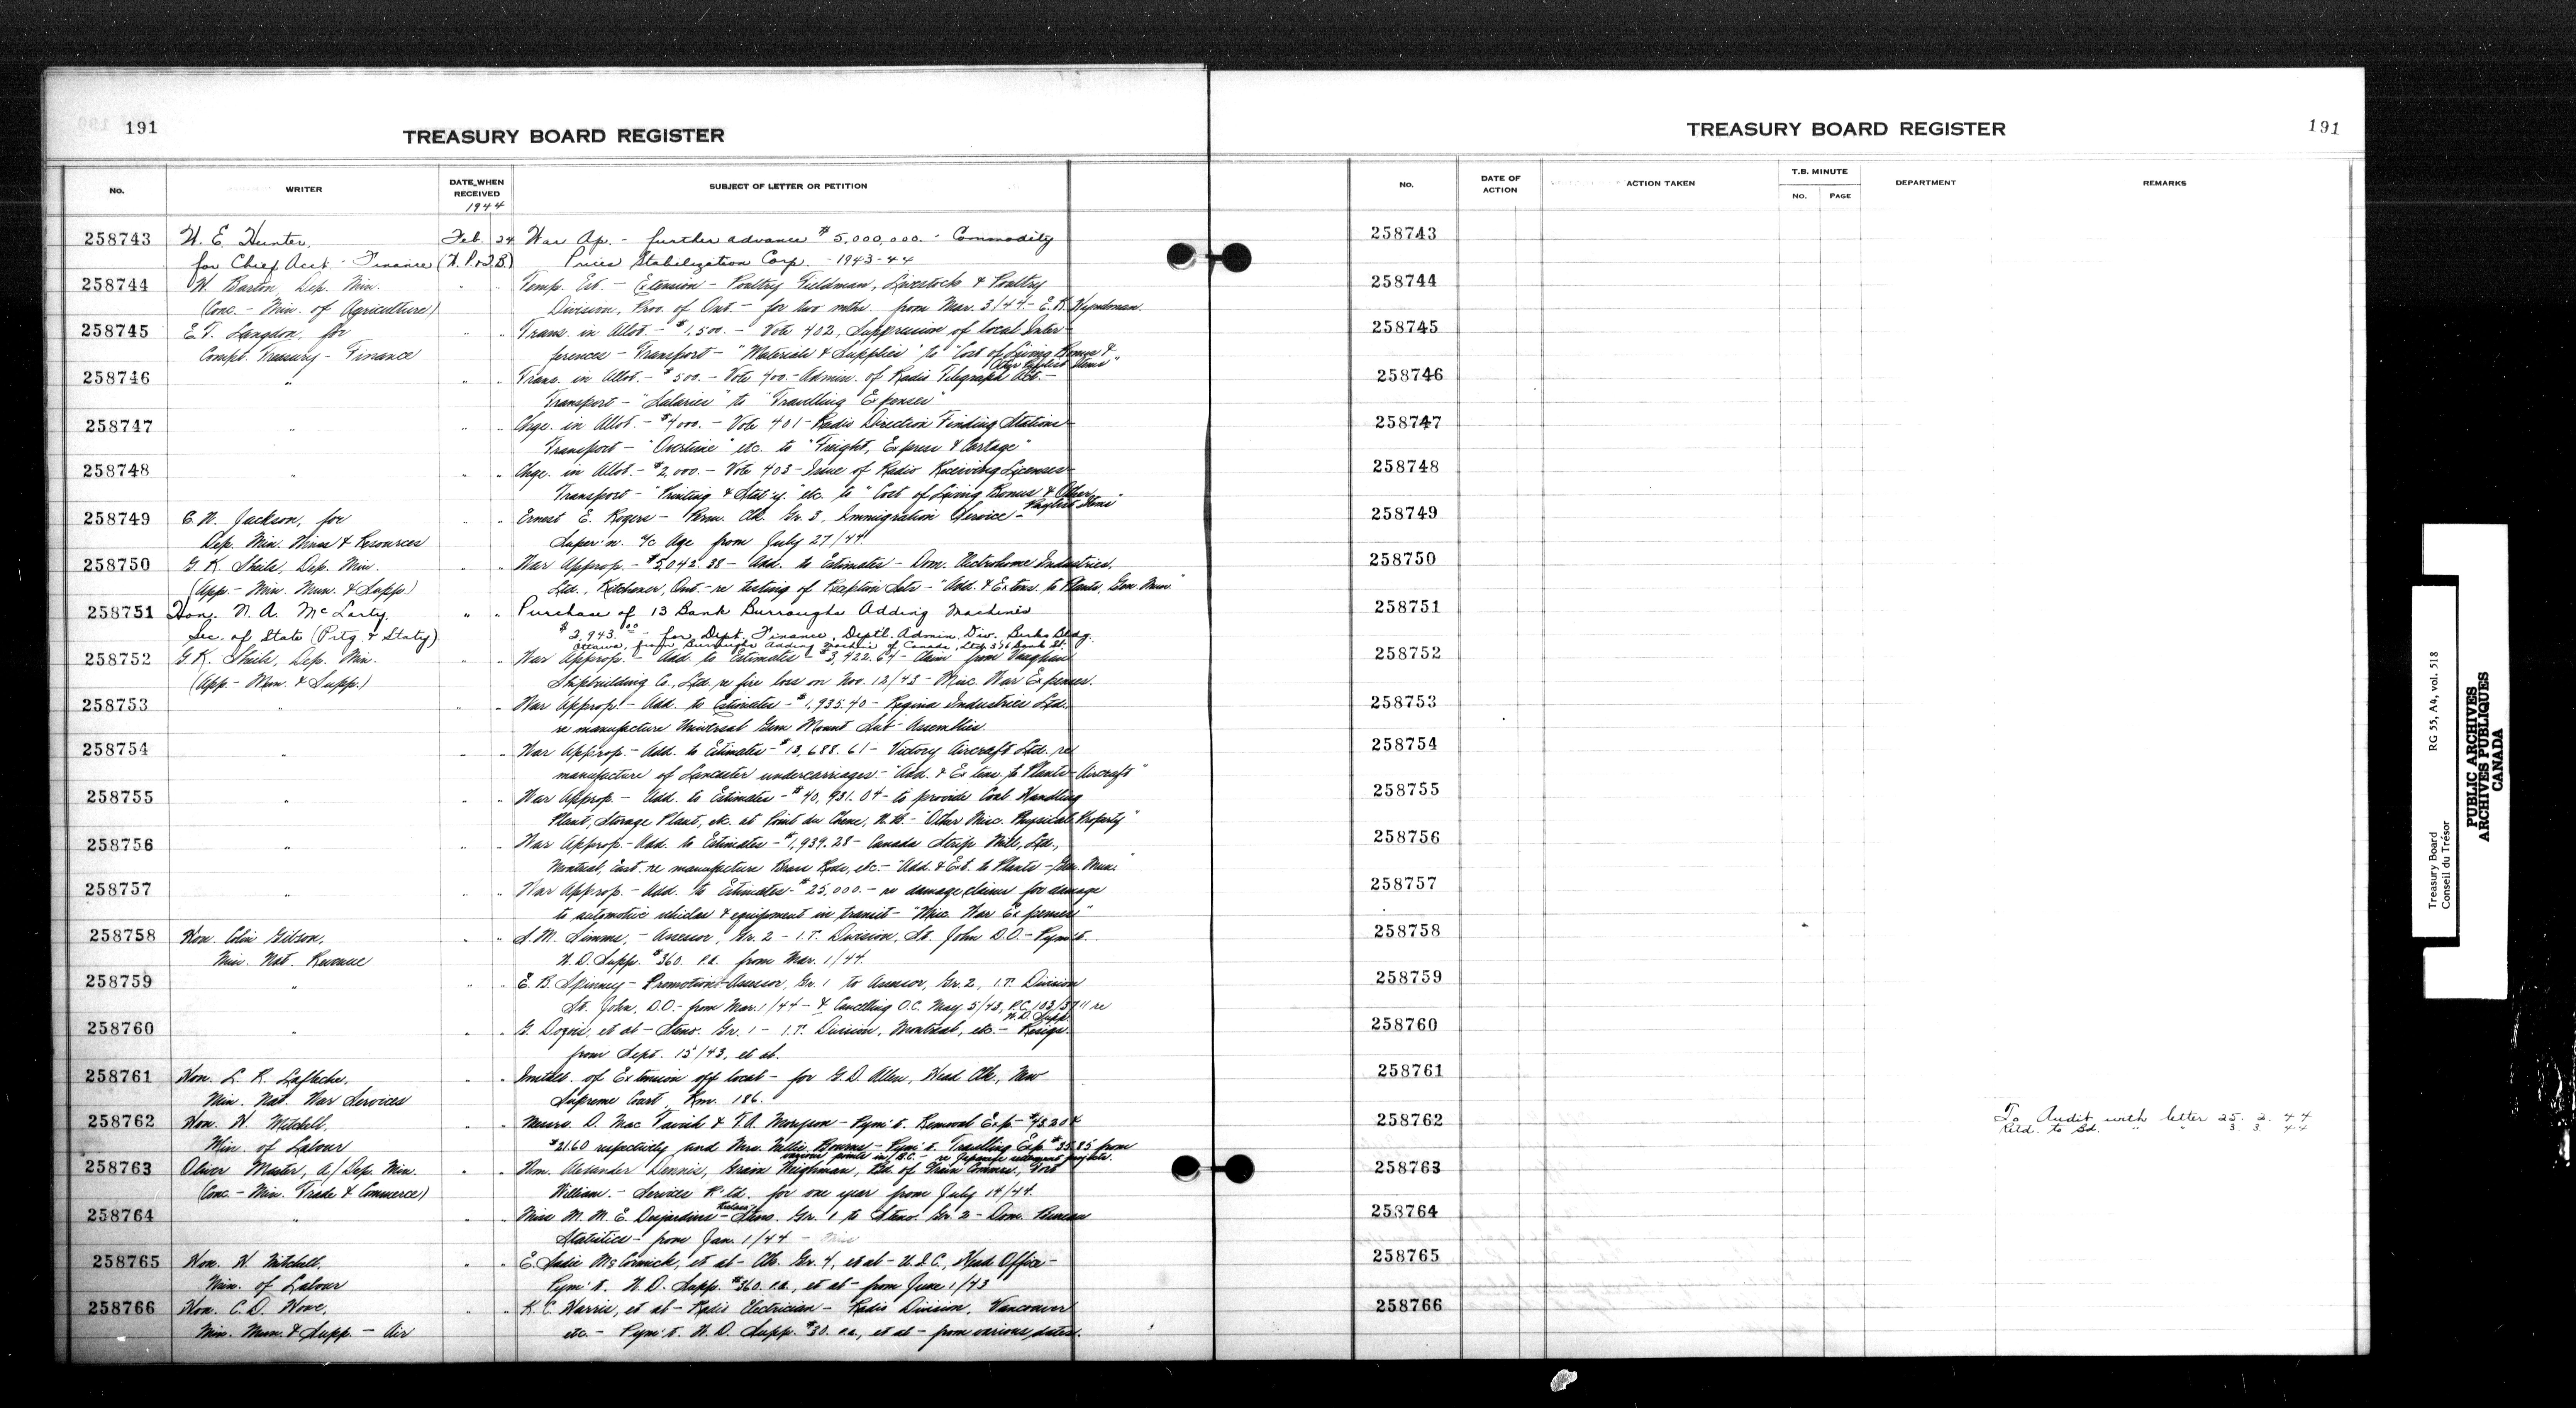 191
TREASURY BOARD REGISTER
No. WRITER DATE WHEN RECEIVED SUBJECT OF LETTER OR PETITION
1944
258743 W. E. Hunter, Feb. 24 War Ap. - further advance $5,000,000. - Commodity
for Chief Acct. - Finance (W.P.&T.B.) Prices Stabilization Corp. - 1943-44
258744 Barton, Dep. Min. " " Temp. Est. - Extension - Poultry Fieldman, Livestock & Poultry
(Conc. - Min. of Agriculture) Division, Prov. of Ont. - for two mths. from Mar. 3/44 - E. R. Wyndman.
258745 E. T. Langdon, for " " Trans. in Allot. - $1,500. - Vote 402, Suppression of local Inter-
Compt. Treasury - Finance ferences - Transport - "Materials & Supplies" to "Cost of Living Bonus &
Other Paylist Items"
258746 " " " Trans. in Allot. - $500. - Vote 400 - Admin. of Radio Telegraph Act. -
Transport - "Salaries" to "Travelling Expenses"
258747 " " " Chge. in Allot. - $4000. - Vote 401 - Radio Direction Finding Stations
Transport - "Overtime" etc. to "Freight, Express & Cartage"
258748 " " " Chge. in Allot. - $2,000. - Vote 403 - Issue of Radio Receiving Licenses
Transport - "Printing & Stat'y." etc. to "Cost of Living Bonus & Other
Paylist Items"
258749 C. W. Jackson, for " " Ernest E. Rogers - Perm. Clk. Gr. 3, Immigration Service -
Dep. Min. Mines & Resources Super'n. a/c Age from July 27/44.
258750 G. K. Sheils, Dep. Min. " " War Approp. - $5,042.38 - Add. to Estimates - Dom. Electrohome Industries,
(App. - Min. Mun. & Supp.) Ltd., Kitchener, Ont. - re testing of Reception Sets - "Add. & Extens. to Plants, Gen. Mun."
258751 Hon. N. A. McLarty, " " Purchase of 13 Bank Burroughs Adding Machines
Sec. of State (Prtg. & Staty) $2,943.00 - for Dept. Finance, Deptl. Admin. Div. Birks Bldg.
Ottawa, from Burroughs Adding Machine of Canada, Ltd., Bank St.
258752 G. K. Sheils, Dep. Min. " " War Approp. - Add. to Estimates - $3,422.64 - Claim from Vaughan
(App. - Mun. & Supp.) Shipbuilding Co., Ltd. re fire loss on Nov. 12/43 - Misc. War Expenses.
258753 " " " War Approp. - Add. to Estimates - $1,935.40 - Regina Industries Ltd.
re manufacture Universal Gun Mount Sub-Assemblies.
258754 " " " War Approp. - Add. to Estimates - $13,688.61 - Victory Aircraft Ltd. re
manufacture of Lancaster undercarriages. - "Add. & Extens. to Plants - Aircraft"
258755 " " " War Approp. - Add. to Estimates - $40,931.04 - to provide Coal Handling
Plant, Storage Plant, etc. at Point du Chene, N.B. - "Other Misc. Physical Property"
258756 " " " War Approp. - Add. to Estimates - $1,939.28 - Canada Strip Mill, Ltd.,
Montreal, East. re manufacture Brass Rods, etc. - "Add. & Ext. to Plants - Gen. Mun."
258757 " " " War Approp. - Add. to Estimates - $25,000. - re damage claims for damage
to automotive vehicles & equipment in transit - "Misc. War Expenses"
258758 Hon. Colin Gibson, " " S. M. Simms, - Assessor, Gr. 2 - I.T. Division, St. John D.O. - Pym't.
Min. Nat. Revenue W.D. Supp. $360. p.a. from Mar. 1/44.
258759 " " " E. B. Spinney - Promotion - Assessor, Gr. 1 to Assessor, Gr. 2, I.T. Division
St. John, D.O. - from Mar. 1/44 - & Cancelling O.C. May 5/43, P.C. re
W.D. Supp.
258760 " " " G. et al - Steno. Gr. 1 - I.T. Division, Montreal, etc. - Resign.
from Sept. 15/43, et al.
258761 Hon. L. R. Lafleche, " " Install. of Extension off local - for G. D. Allen, Head Clk., New
Min. Nat. War Services Supreme Court, Rm. 186.
258762 Hon. H. Mitchell, " " Messrs. D. Mac Tavish & T. A. - Pym't. Removal Exp. - $43.20 &
Min. of Labour $21.60 respectively and Mrs. Nellie Bourne - Pym't. Travelling Exp. $35.85 from
various points in B.C. - re Japanese projects.
258763 Oliver Master, A/Dep. Min. " " Wm. Alexander Dennis, Grain Weighman, Bd. of Grain Commrs., Fort
(Conc. - Min. Trade & Commerce) William. - Services R'td. for one year from July 14/44.
258764 " " " Miss M. M. E. Desjardins - Steno. Gr. 1 to Steno. Gr. 2 - Dom. Bureau
Statistics - from Jan. 1/44
258765 Hon. H. Mitchell, " " E. Sadie McCormick, et al - Clk. Gr. 4, et al - U.I.C., Head Office -
Min. of Labour Pym't. W.D. Supp. $360. p.a., et al - from June 1/43
258766 Hon. C. D. Howe, " " K. C. Harris, et al - Radio Electrician - Radio Division, Vancouver
Min. Mun. & Supp. - Air etc. - Pym't. W.D. Supp. $30. p.a., et al - from various dates.
TREASURY BOARD REGISTER
191
No. DATE OF ACTION ACTION TAKEN T.B. MINUTE DEPARTMENT REMARKS
No. PAGE
258743
258744
258745
258746
258747
258748
258749
258750
258751
258752
258753
258754
258755
258756
258757
258758
258759
258760
258761
258762 To Audit with letter 25. 2. 44
Retd. to Bd. " " 3. 3. 44
258763
258764
258765
258766
Treasury Board RG 55, A4, vol. 518
Conseil du Trésor
PUBLIC ARCHIVES
ARCHIVES PUBLIQUES
CANADA